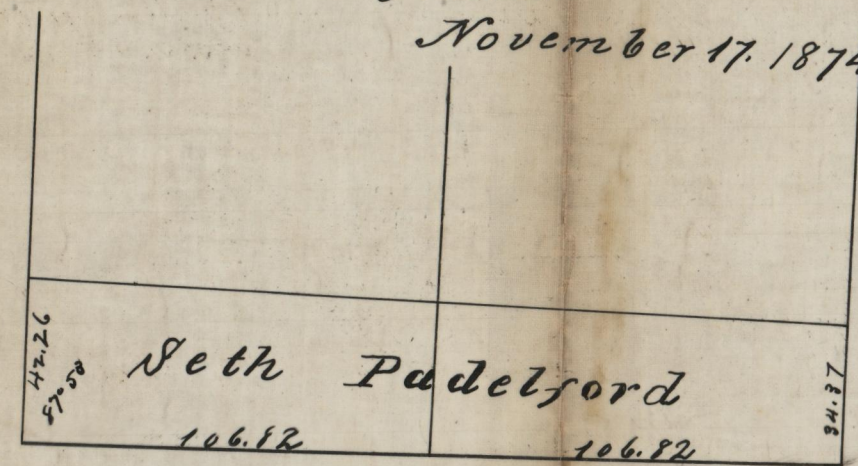 November 17. 1874
42.26
87°50
Seth Padelford
34.37
106.82
106.82